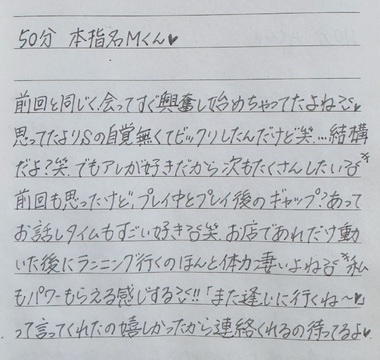 50分 本指名Mくん♥
前回と同じく、会ってすぐ興奮し始めちゃってたよね💦
思ってたよりSの自覚無くてビックリしたんだけど笑…結構
だよ?笑 でもアレが好きだから次もたくさんしたい
前回も思ったけど、プレイ中とプレイ後のギャップ?あって
お話しタイムもすごい好き 笑 お店であれだけ動
いた後にランニング行くのほんと体力凄いよね 私
もパワーもらえる感じする!!「また逢いに行くね〜♥」
って言ってくれたの嬉しかったから連絡くれるの待ってるよ♥